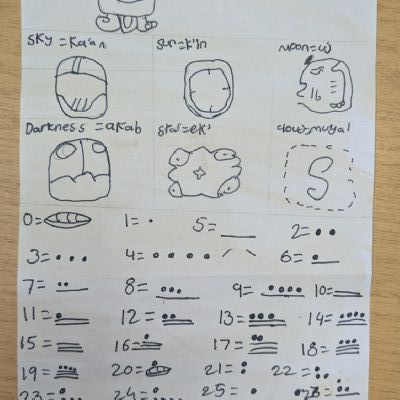 Sky = Ka'an sun = k'in moon = u
16
Darkness = aKab star = ek' cloud = muyal
S
0= 1= 5= 2=
3= 4= 6=
7= 8= 9= 10=
11= 12= 13= 14=
15= 16= 17= 18=
19= 20= 21= 22=
23= 24= 25= 26=